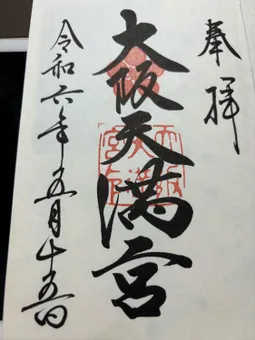 奉拝
大阪天満宮
令和六年五月十五日